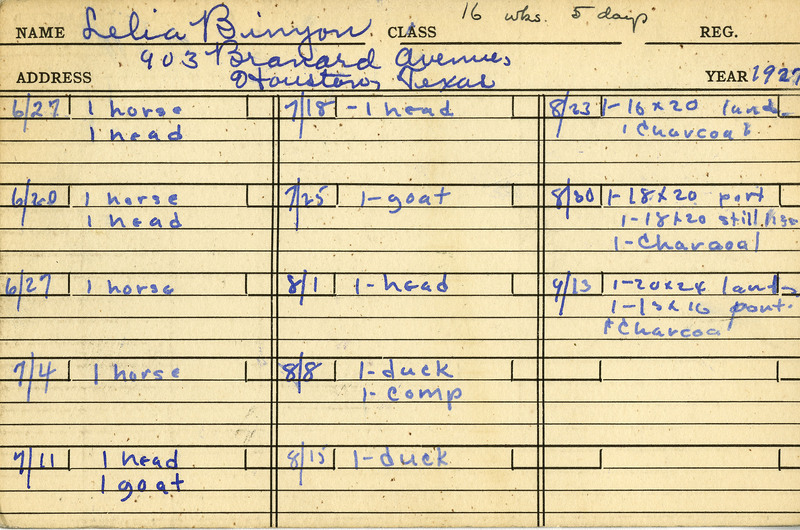 16 wks. 5 days
NAME Lelia Binyon CLASS REG.
903 Branard Avenue,
ADDRESS Houston, Texas YEAR 1927
6/27 1 horse
1 head
6/20 1 horse
1 head
6/27 1 horse
7/4 1 horse
7/11 1 head
1 goat
7/18 - 1 head
7/25 1-goat
8/1 1-head
8/8 1-duck
1-comp
8/15 1-duck
8/23 1-16x20 land.
1 Charcoal
8/30 1-18x20 port
1-18x20 still
1-Charcoal
9/13 1-20x24 land
port.
1 Charcoal